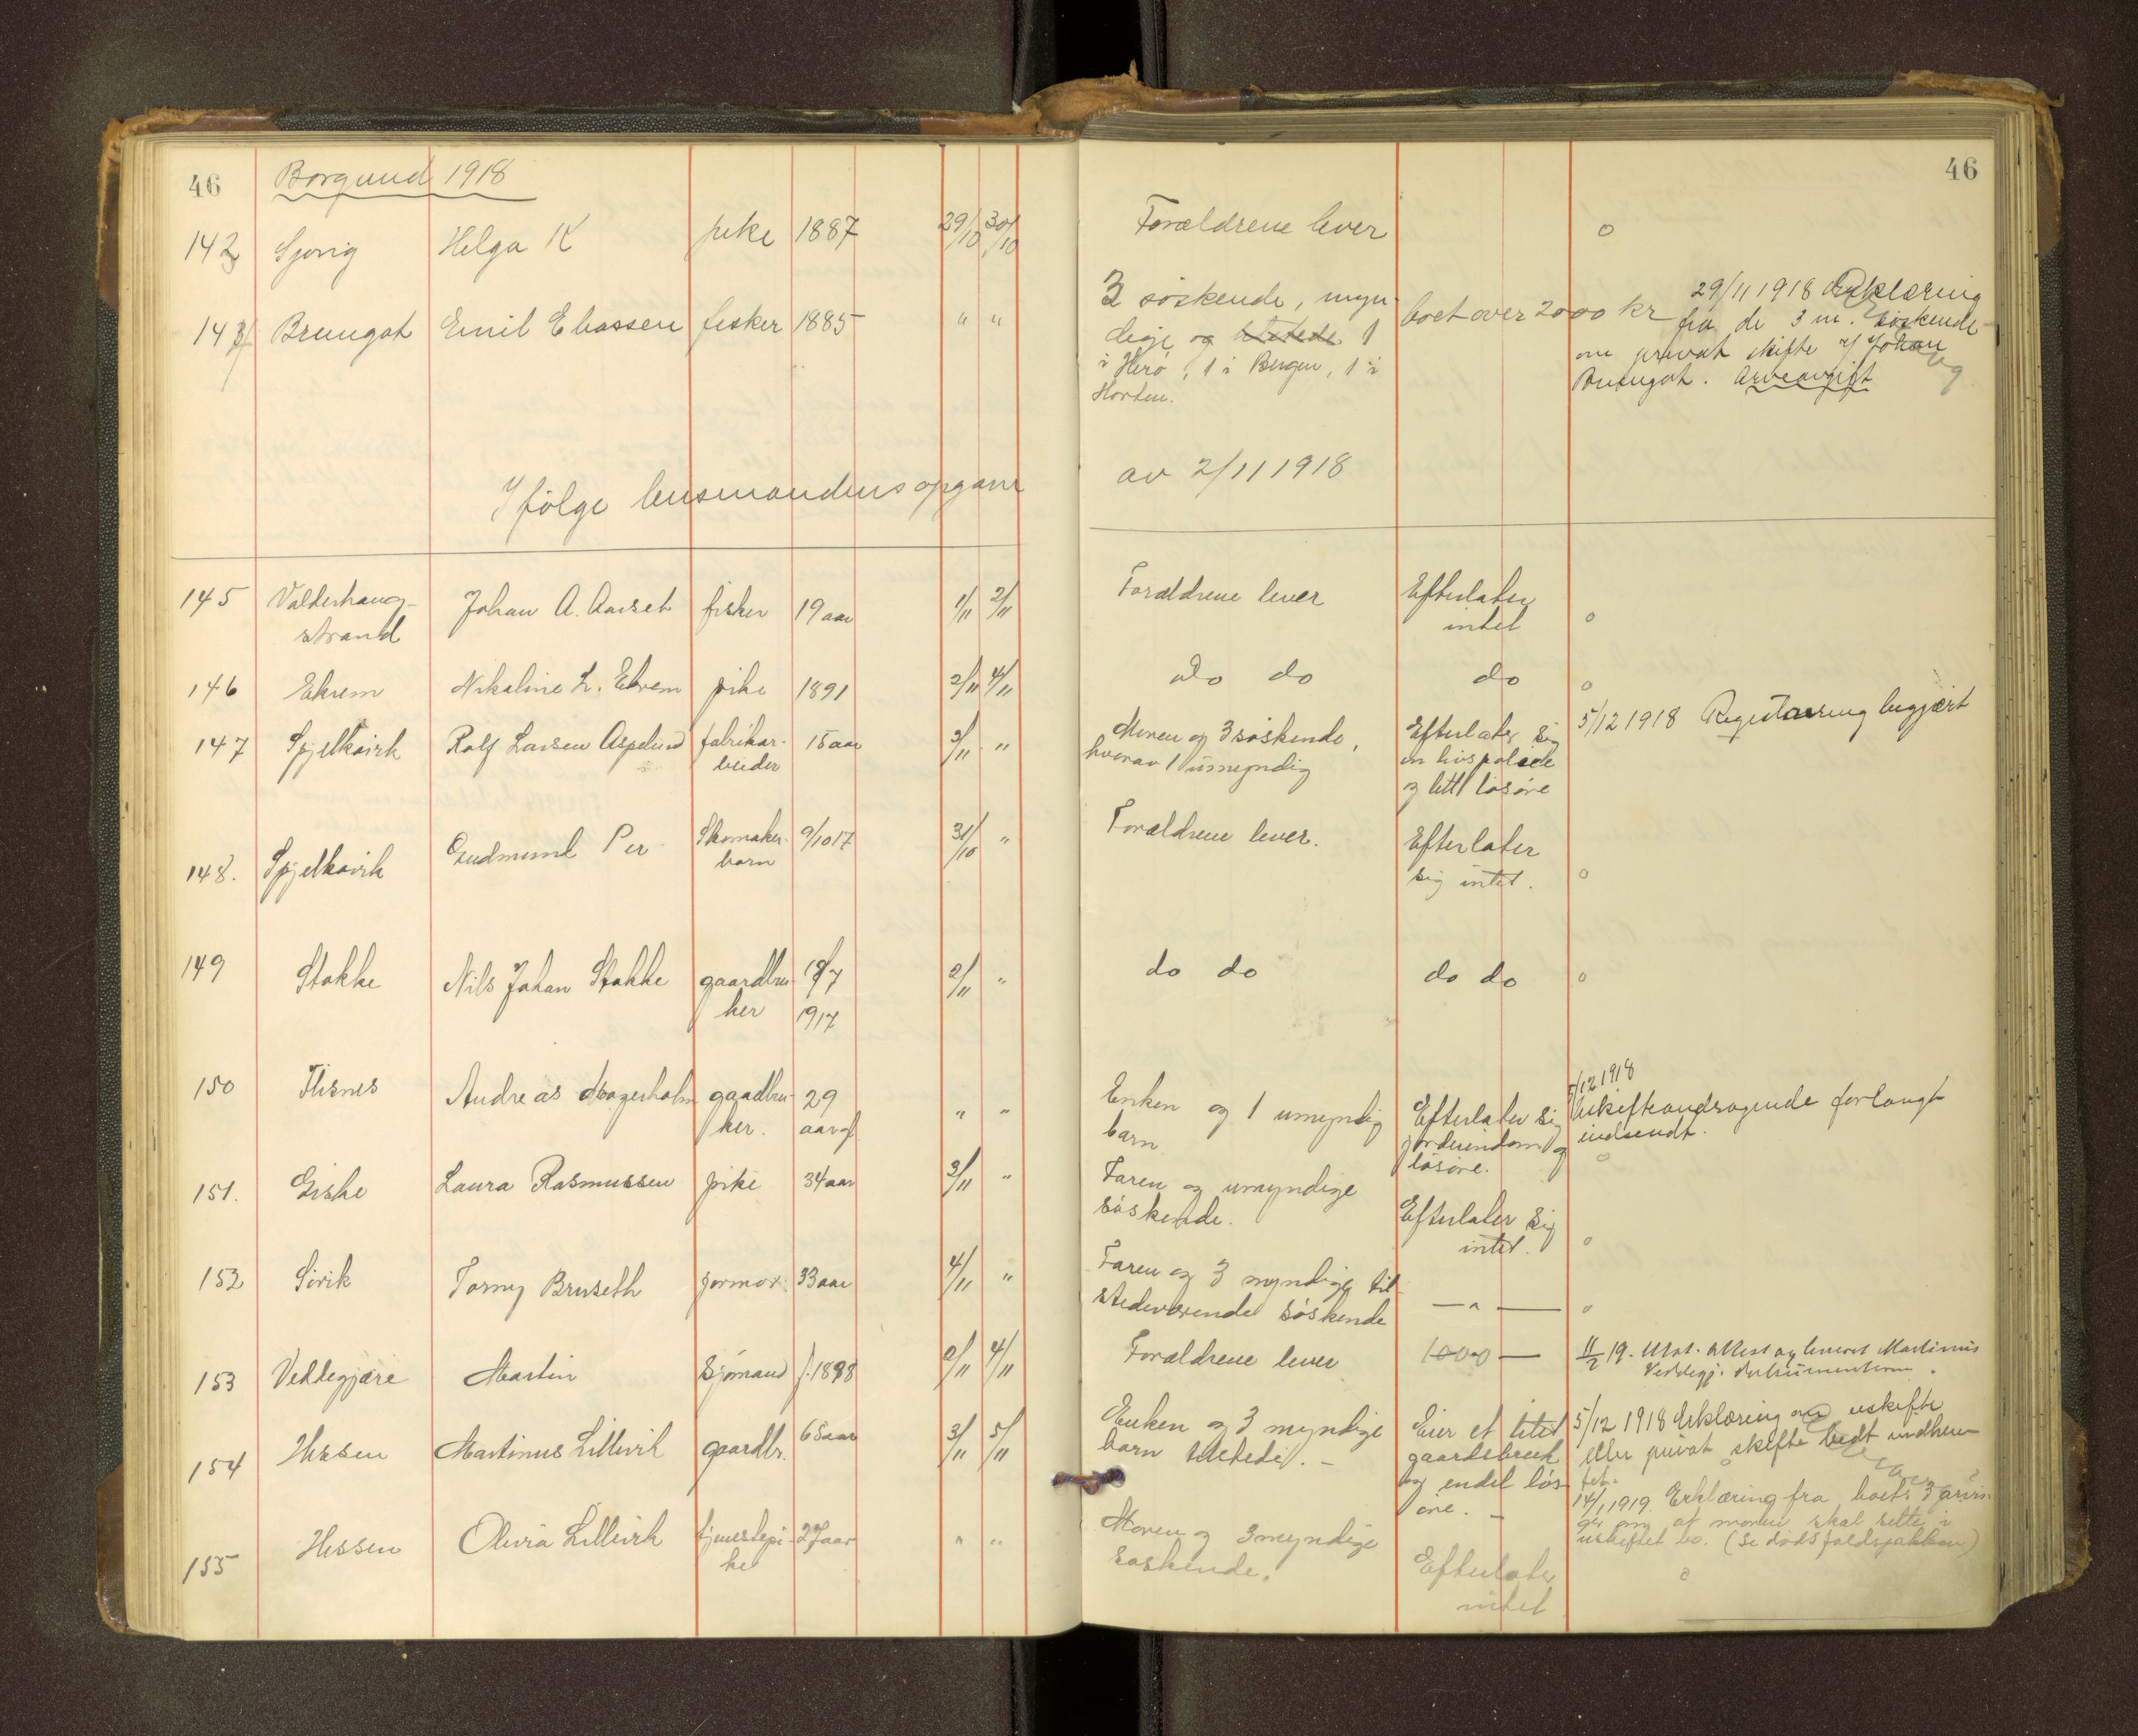 46 Borgund 1918 46
142 Sjong Helga K pike 1887 29/10 30/10 Forældrene lever o
143 Brungot Emil Eliassen fisker 1885 " " 3 søskende, myn- boet over 2000 kr 29/11 1918 Erklæring
dige og 1 fra de 3 m. søskende
i Herø, 1 i Bergen, 1 i om privat skifte v/ Johan
Horten. Brungot. Arveavgift
Ifølge lensmandens opgave av 2/11 1918
145 Valderhaug- Johan A. Aarset fisker 19 aar 1/11 2/11 Forældrene lever Efterlater
strand intet o
146 Ekrem Nikoline L. Ekrem pike 1891 2/11 4/11 do do do o
147 Spjelkavik Rolf Larsen Aspelund fabrikar- 15 aar 3/11 " Moren og 3 søskende, Efterlater sig 5/12 1918 Registrering begjært
beider hvorav 1 umyndig en livspolice
og litt løsøre
148. Spjelkavik Gudmund Per Skomaker- 9/10 17 31/10 " Forældrene lever. Efterlater
barn sig intet. o
149 Stokke Nils Johan Stokke gaardbru- 2/11 " do do do do o
ker 1917
150 Flisnes Andreas Magerholm gaardbru- 29 " " Enken og 1 umyndig Efterlater sig 5/12 1918
ker. aar gl. barn jordeiendom og uskifteandragende forlangt
løsøre. indsendt.
151. Giske Laura Rasmussen pike 34 aar 3/11 " Faren og umyndige
søskende. Efterlater sig
intet. o
152 Torny Bruseth jormor. 33 aar 4/11 " Faren og 3 myndige til-
stedeværende søskende — " — o
153 Veddegjære Martin Sjømand f. 1898 2/11 4/11 Forældrene lever 1000 — 11/2 19. Utst. attest og leveret Martinus
Veddegj. dokumenterne.
154 Hessen Martinus Lillevik gaardbr. 65 aar 3/11 5/11 Enken og 3 myndige Eier et litet 5/12 1918 Erklæring om uskifte
barn tilstede. – gaardsbruk eller privat skifte bedt indhen-
og endel løs- tet.
øre. – 14/1 1919. Erklæring fra boets 3 arvin-
ger om at moren skal sitte i
uskiftet bo. (Se dødsfaldspakken)
155 Hessen Olivia Lillevik tjenestepi- 27 aar " " Moren og 3 myndige
ke søskende. Efterlater o
intet